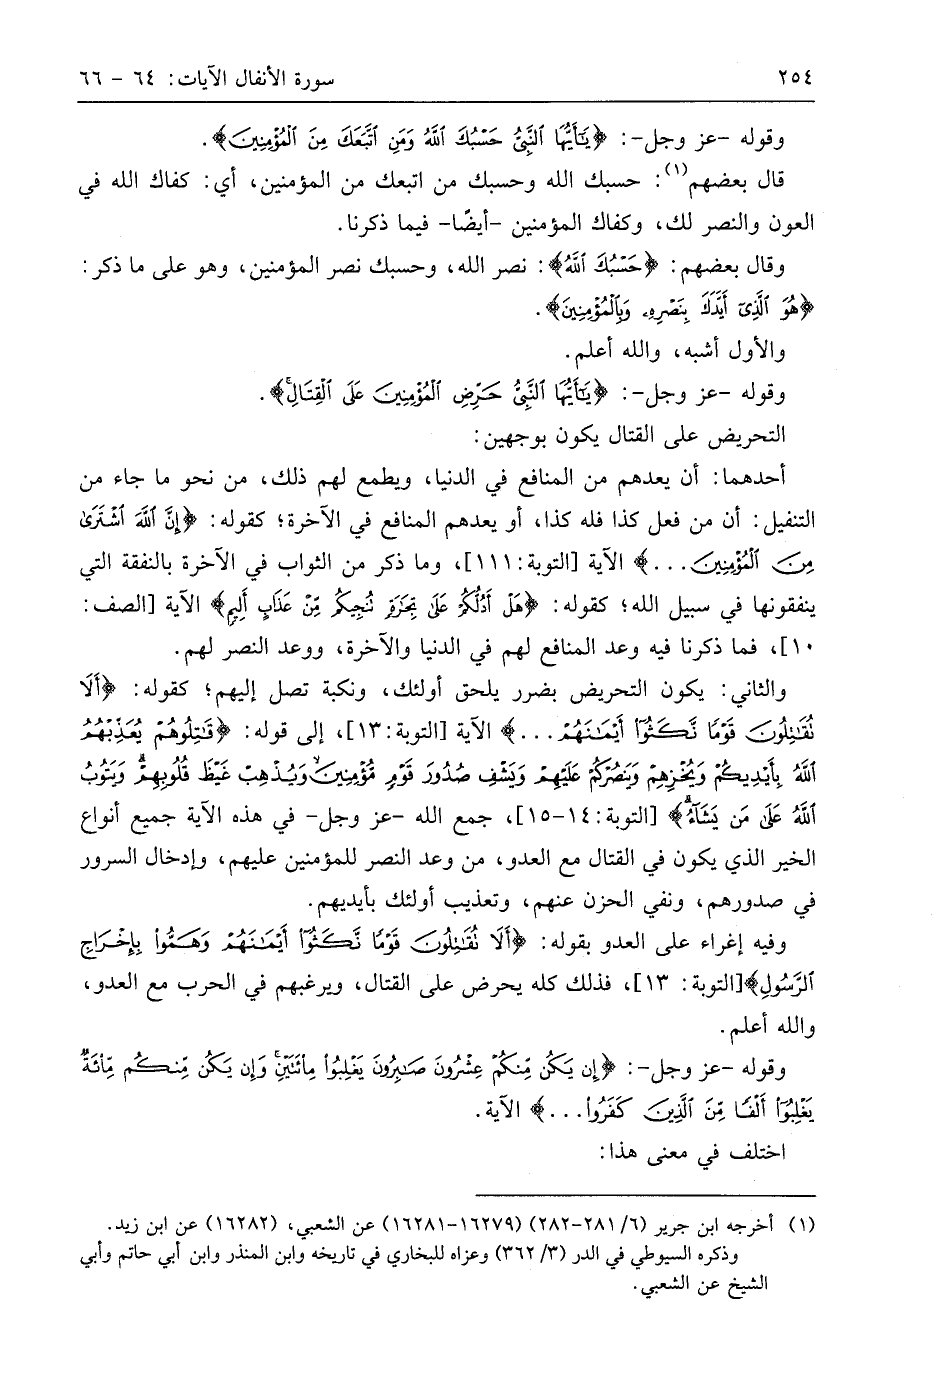 ٢٥٤ سورة الأنفال الآيات: ٦٤ - ٦٦
وقوله -عز وجل-: ﴿يَٰٓأَيُّهَا ٱلنَّبِيُّ حَسْبُكَ ٱللَّهُ وَمَنِ ٱتَّبَعَكَ مِنَ ٱلْمُؤْمِنِينَ﴾.
قال بعضهم(١): حسبك الله وحسبك من اتبعك من المؤمنين، أي: كفاك الله في
العون والنصر لك، وكفاك المؤمنين -أيضًا- فيما ذكرنا.
وقال بعضهم: ﴿حَسْبُكَ ٱللَّهُ﴾: نصر الله، وحسبك نصر المؤمنين، وهو على ما ذكر:
﴿هُوَ ٱلَّذِىٓ أَيَّدَكَ بِنَصْرِهِۦ وَبِٱلْمُؤْمِنِينَ﴾.
والأول أشبه، والله أعلم.
وقوله -عز وجل-: ﴿يَٰٓأَيُّهَا ٱلنَّبِيُّ حَرِّضِ ٱلْمُؤْمِنِينَ عَلَى ٱلْقِتَالِۚ﴾.
التحريض على القتال يكون بوجهين:
أحدهما: أن يعدهم من المنافع في الدنيا، ويطمع لهم ذلك، من نحو ما جاء من
التنفيل: أن من فعل كذا فله كذا، أو يعدهم المنافع في الآخرة؛ كقوله: ﴿إِنَّ ٱللَّهَ ٱشْتَرَىٰ
مِنَ ٱلْمُؤْمِنِينَ...﴾ الآية [التوبة:١١١]، وما ذكر من الثواب في الآخرة بالنفقة التي
ينفقونها في سبيل الله؛ كقوله: ﴿هَلْ أَدُلُّكُمْ عَلَىٰ تِجَٰرَةٍ تُنجِيكُم مِّنْ عَذَابٍ أَلِيمٍ﴾ الآية [الصف:
١٠]، فما ذكرنا فيه وعد المنافع لهم في الدنيا والآخرة، ووعد النصر لهم.
والثاني: يكون التحريض بضرر يلحق أولئك، ونكبة تصل إليهم؛ كقوله: ﴿أَلَا
تُقَٰتِلُونَ قَوْمًا نَّكَثُوٓا۟ أَيْمَٰنَهُمْ...﴾ الآية [التوبة:١٣]، إلى قوله: ﴿قَٰتِلُوهُمْ يُعَذِّبْهُمُ
ٱللَّهُ بِأَيْدِيكُمْ وَيُخْزِهِمْ وَيَنصُرْكُمْ عَلَيْهِمْ وَيَشْفِ صُدُورَ قَوْمٍ مُّؤْمِنِينَۙ وَيُذْهِبْ غَيْظَ قُلُوبِهِمْۗ وَيَتُوبُ
ٱللَّهُ عَلَىٰ مَن يَشَآءُۗ﴾ [التوبة:١٤-١٥]، جمع الله -عز وجل- في هذه الآية جميع أنواع
الخير الذي يكون في القتال مع العدو، من وعد النصر للمؤمنين عليهم، وإدخال السرور
في صدورهم، ونفي الحزن عنهم، وتعذيب أولئك بأيديهم.
وفيه إغراء على العدو بقوله: ﴿أَلَا تُقَٰتِلُونَ قَوْمًا نَّكَثُوٓا۟ أَيْمَٰنَهُمْ وَهَمُّوا۟ بِإِخْرَاجِ
ٱلرَّسُولِ﴾[التوبة: ١٣]، فذلك كله يحرض على القتال، ويرغبهم في الحرب مع العدو،
والله أعلم.
وقوله -عز وجل-: ﴿إِن يَكُن مِّنكُمْ عِشْرُونَ صَٰبِرُونَ يَغْلِبُوا۟ مِا۟ئَتَيْنِۚ وَإِن يَكُن مِّنكُم مِّا۟ئَةٌ
يَغْلِبُوٓا۟ أَلْفًا مِّنَ ٱلَّذِينَ كَفَرُوا۟...﴾ الآية.
اختلف في معنى هذا:
(١) أخرجه ابن جرير (٦/ ٢٨١-٢٨٢) (١٦٢٧٩-١٦٢٨١) عن الشعبي، (١٦٢٨٢) عن ابن زيد.
وذكره السيوطي في الدر (٣/ ٣٦٢) وعزاه للبخاري في تاريخه وابن المنذر وابن أبي حاتم وأبي
الشيخ عن الشعبي.